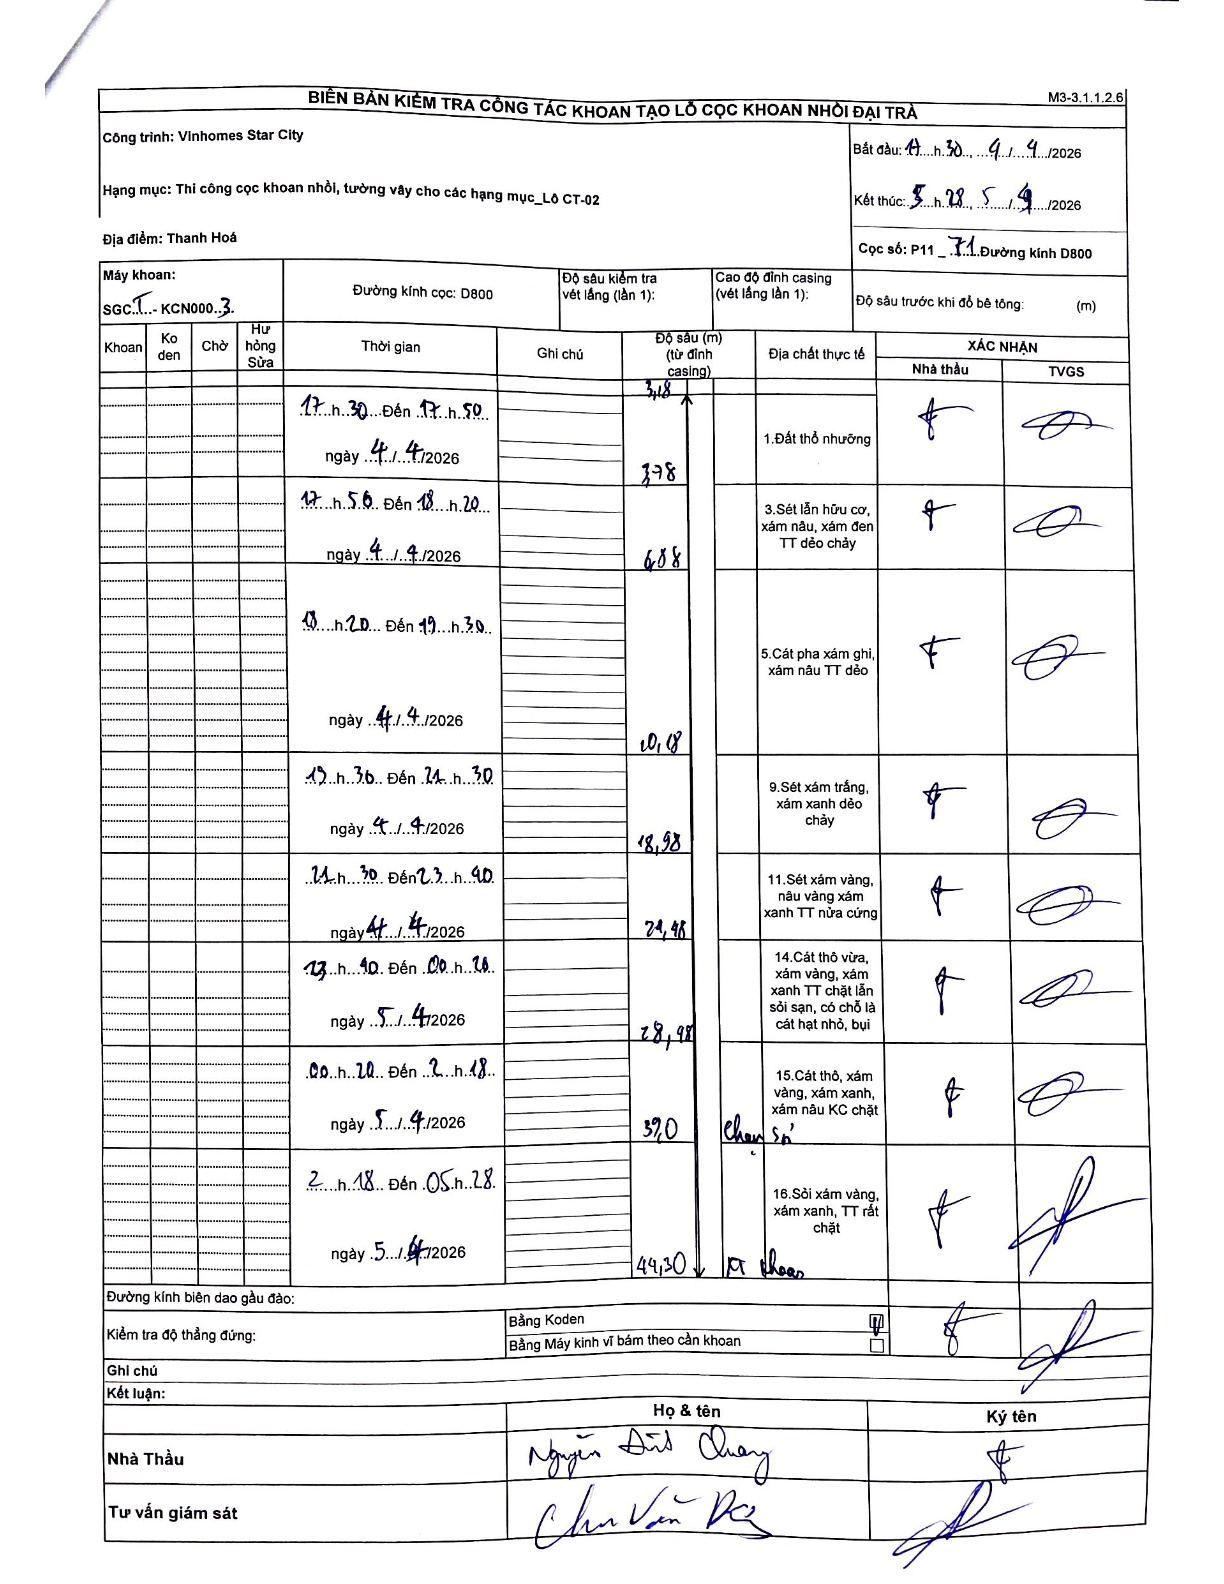 M3-3.1.1.2.6
BIÊN BẢN KIỂM TRA CÔNG TÁC KHOAN TẠO LỖ CỌC KHOAN NHỒI ĐẠI TRÀ
Công trình: Vinhomes Star City
Bắt đầu: 17 h 30, 4/4/2026
Hạng mục: Thi công cọc khoan nhồi, tường vây cho các hạng mục_Lô CT-02
Kết thúc: 5 h 28, 5/4/2026
Địa điểm: Thanh Hoá
Cọc số: P11 _ 71 Đường kính D800
Máy khoan:
SGC I - KCN000 3
Đường kính cọc: D800
Độ sâu kiểm tra
vét lắng (lần 1):
Cao độ đỉnh casing
(vét lắng lần 1):
Độ sâu trước khi đổ bê tông: (m)
Khoan
Ko
den
Chờ
Hư
hỏng
Sửa
Thời gian
Ghi chú
Độ sâu (m)
(từ đỉnh
casing)
Địa chất thực tế
XÁC NHẬN
Nhà thầu
TVGS
3,18
17 h 30 Đến 17 h 50
ngày 4/4/2026
3,78
1.Đất thổ nhưỡng
17 h 50 Đến 18 h 20
ngày 4/4/2026
6,08
3.Sét lẫn hữu cơ,
xám nâu, xám đen
TT dẻo chảy
18 h 20 Đến 19 h 30
ngày 4/4/2026
10,18
5.Cát pha xám ghi,
xám nâu TT dẻo
19 h 30 Đến 21 h 30
ngày 4/4/2026
18,98
9.Sét xám trắng,
xám xanh dẻo
chảy
21 h 30 Đến 23 h 40
ngày 4/4/2026
24,48
11.Sét xám vàng,
nâu vàng xám
xanh TT nửa cứng
23 h 40 Đến 00 h 20
ngày 5/4/2026
28,98
14.Cát thô vừa,
xám vàng, xám
xanh TT chặt lẫn
sỏi sạn, có chỗ là
cát hạt nhỏ, bụi
00 h 20 Đến 2 h 18
ngày 5/4/2026
39,0
Chạm sỏi
15.Cát thô, xám
vàng, xám xanh,
xám nâu KC chặt
2 h 18 Đến 05 h 28
ngày 5/4/2026
44,30
KT khoan
16.Sỏi xám vàng,
xám xanh, TT rất
chặt
Đường kính biên dao gầu đào:
Kiểm tra độ thẳng đứng:
Bằng Koden
Bằng Máy kinh vĩ bám theo cần khoan
Ghi chú
Kết luận:
Họ & tên
Ký tên
Nhà Thầu
Nguyễn Đức Quang
Tư vấn giám sát
Chu Văn